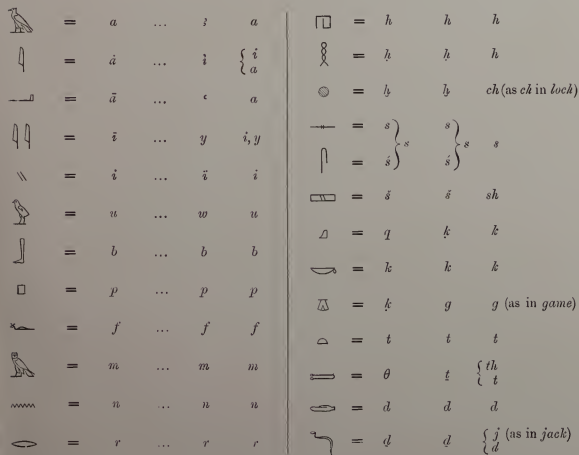 𓄿 = a ... ꜣ a
𓇋 = ȧ ... i̓ { i a
𓂝 = ā ... ꜥ a
𓇋𓇋 = ī ... y i, y
𓏭 = i ... ï i
𓅱 = u ... w u
𓃀 = b ... b b
𓊪 = p ... p p
𓆑 = f ... f f
𓅓 = m ... m m
𓈖 = n ... n n
𓂋 = r ... r r
𓉔 = h h h
𓎛 = ḥ ḥ h
𓐍 = ḫ ḫ ch (as ch in loch)
𓊃 = s } s s } s s
𓋴 = ś ś
𓈙 = š š sh
𓈎 = q ḳ k
𓎡 = k k k
𓎼 = ḳ g g (as in game)
𓏏 = t t t
𓍿 = θ ṯ { th t
𓂧 = d d d
𓆓 = ḏ ḏ { j (as in jack) d